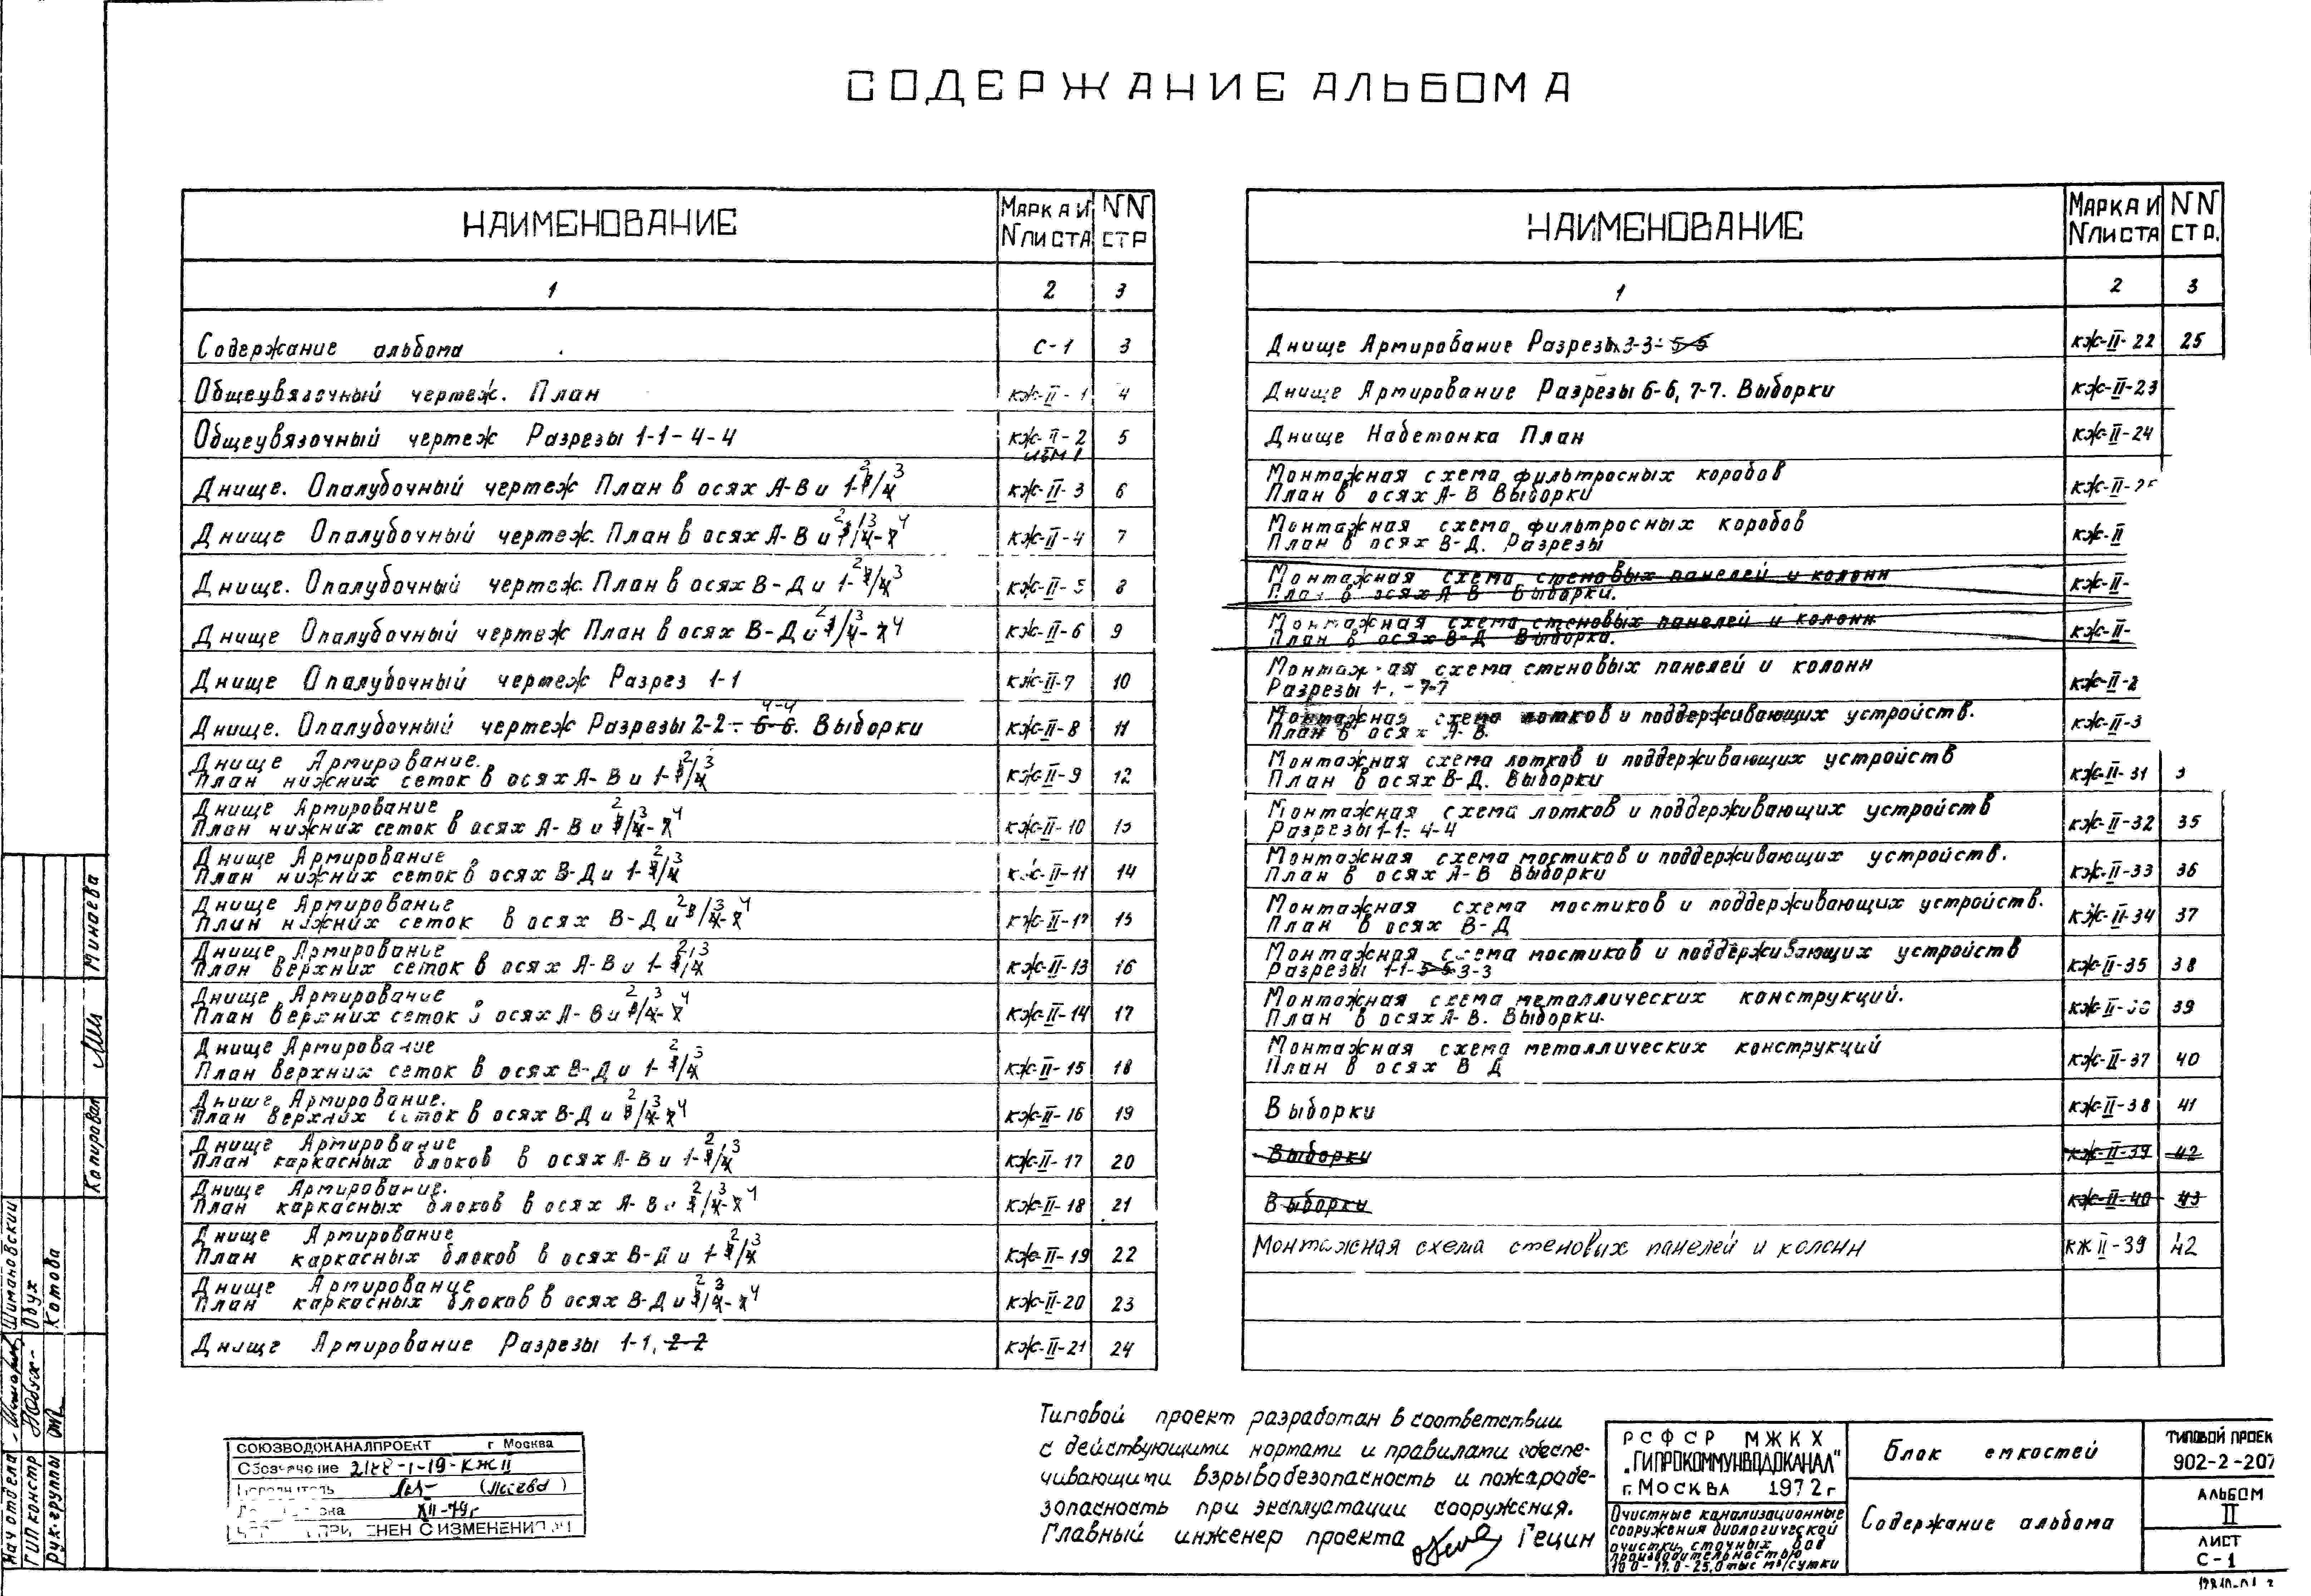 СОДЕРЖАНИЕ АЛЬБОМА
НАИМЕНОВАНИЕ
МАРКА И N ЛИСТА
NN СТР
1 2 3
Содержание альбома С-1 3
Общеувязочный чертеж. План КЖ-II-1 4
Общеувязочный чертеж Разрезы 1-1-4-4 КЖ-II-2 5
Днище. Опалубочный чертеж План в осях А-В и 1-2/3 КЖ-II-3 6
Днище Опалубочный чертеж. План в осях А-В и 2/3-4 КЖ-II-4 7
Днище. Опалубочный чертеж. План в осях В-Д и 1-2/3 КЖ-II-5 8
Днище Опалубочный чертеж План в осях В-Д и 2/3-4 КЖ-II-6 9
Днище Опалубочный чертеж Разрез 1-1 КЖ-II-7 10
Днище. Опалубочный чертеж Разрезы 2-2÷6-6 4-4. Выборки КЖ-II-8 11
Днище Армирование.
План нижних сеток в осях А-В и 1-2/3 КЖ-II-9 12
Днище Армирование
План нижних сеток в осях А-В и 2/3-4 КЖ-II-10 13
Днище Армирование
План нижних сеток в осях В-Д и 1-2/3 КЖ-II-11 14
Днище Армирование
План нижних сеток в осях В-Д и 2/3-4 КЖ-II-12 15
Днище Армирование
План верхних сеток в осях А-В и 1-2/3 КЖ-II-13 16
Днище Армирование
План верхних сеток в осях А-В и 2/3-4 КЖ-II-14 17
Днище Армирование
План верхних сеток в осях В-Д и 1-2/3 КЖ-II-15 18
Днище Армирование.
План верхних сеток в осях В-Д и 2/3-4 КЖ-II-16 19
Днище Армирование
План каркасных блоков в осях А-В и 1-2/3 КЖ-II-17 20
Днище Армирование.
План каркасных блоков в осях А-В и 2/3-4 КЖ-II-18 21
Днище Армирование
План каркасных блоков в осях В-Д и 1-2/3 КЖ-II-19 22
Днище Армирование
План каркасных блоков в осях В-Д и 2/3-4 КЖ-II-20 23
Днище Армирование Разрезы 1-1, 2-2 КЖ-II-21 24
НАИМЕНОВАНИЕ
МАРКА И N ЛИСТА
NN СТР.
1 2 3
Днище Армирование Разрезы 3-3÷5-5 КЖ-II-22 25
Днище Армирование Разрезы 6-6, 7-7. Выборки КЖ-II-23
Днище Набетонка План КЖ-II-24
Монтажная схема фильтросных коробов
План в осях А-В Выборки КЖ-II-25
Монтажная схема фильтросных коробов
План в осях В-Д. Разрезы КЖ-II
Монтажная схема стеновых панелей и колонн
План в осях А-В Выборки. КЖ-II-
Монтажная схема стеновых панелей и колонн
План в осях В-Д Выборка. КЖ-II-
Монтажная схема стеновых панелей и колонн
Разрезы 1-1-7-7 КЖ-II-2
Монтажная схема лотков и поддерживающих устройств.
План в осях А-В. КЖ-II-3
Монтажная схема лотков и поддерживающих устройств
План в осях В-Д. Выборки КЖ-II-31 3
Монтажная схема лотков и поддерживающих устройств
Разрезы 1-1÷4-4 КЖ-II-32 35
Монтажная схема мостиков и поддерживающих устройств.
План в осях А-В Выборки КЖ-II-33 36
Монтажная схема мостиков и поддерживающих устройств.
План в осях В-Д КЖ-II-34 37
Монтажная схема мостиков и поддерживающих устройств
Разрезы 1-1-5-5 3-3 КЖ-II-35 38
Монтажная схема металлических конструкций.
План в осях А-В. Выборки. КЖ-II-36 39
Монтажная схема металлических конструкций
План в осях В Д КЖ-II-37 40
Выборки КЖ-II-38 41
Выборки КЖ-II-39 42
Выборки КЖ-II-40 43
Монтажная схема стеновых панелей и колонн КЖ II-39 42
Типовой проект разработан в соответствии
с действующими нормами и правилами обеспе-
чивающими взрывобезопасность и пожаробе-
зопасность при эксплуатации сооружения.
Главный инженер проекта Гецин
СОЮЗВОДОКАНАЛПРОЕКТ г Москва
Обозначение 2188-1-19-КЖII
XII-79г
С ИЗМЕНЕНИ
РСФСР МЖКХ
"ГИПРОКОММУНВОДОКАНАЛ"
г. МОСКВА 1972г
Очистные канализационные
сооружения биологической
очистки сточных вод
производительностью
10.0-17.0-25.0 тыс м³/сутки
Блок емкостей
Содержание альбома
ТИПОВОЙ ПРОЕК
902-2-207
АЛЬБОМ
II
ЛИСТ
С-1
Копировал Минаева
Нач отдела Шимановский
ГИП констр Обух
Рук. группы Котова